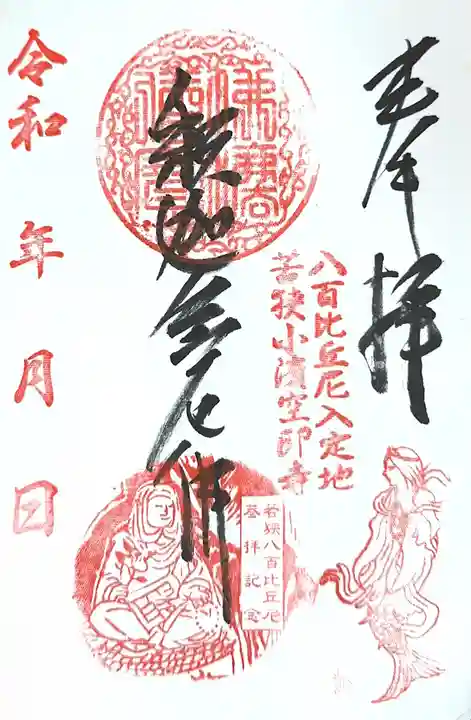 奉拝
八百比丘尼入定地
若狭小濱空印寺
釈迦牟尼佛
若狭八百比丘尼
参拝記念
令和 年 月 日